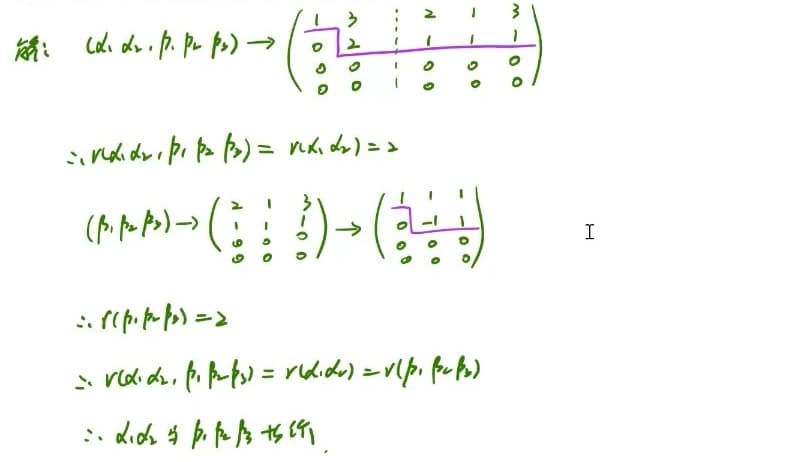 解: (α₁ α₂, β₁ β₂ β₃) → ( 1 3 ⋮ 2 1 3
0 2 ⋮ 1 1 1
0 0 ⋮ 0 0 0
0 0 ⋮ 0 0 0 )
∴ r(α₁ α₂, β₁ β₂ β₃) = r(α₁ α₂) = 2
(β₁ β₂ β₃) → ( 2 1 3 ) → ( 1 1 1 )
( 1 1 1 ) ( 0 -1 1 )
( 0 0 0 ) ( 0 0 0 )
( 0 0 0 ) ( 0 0 0 )
∴ r(β₁ β₂ β₃) = 2
∴ r(α₁ α₂, β₁ β₂ β₃) = r(α₁ α₂) = r(β₁ β₂ β₃)
∴ α₁ α₂ 与 β₁ β₂ β₃ 等价.